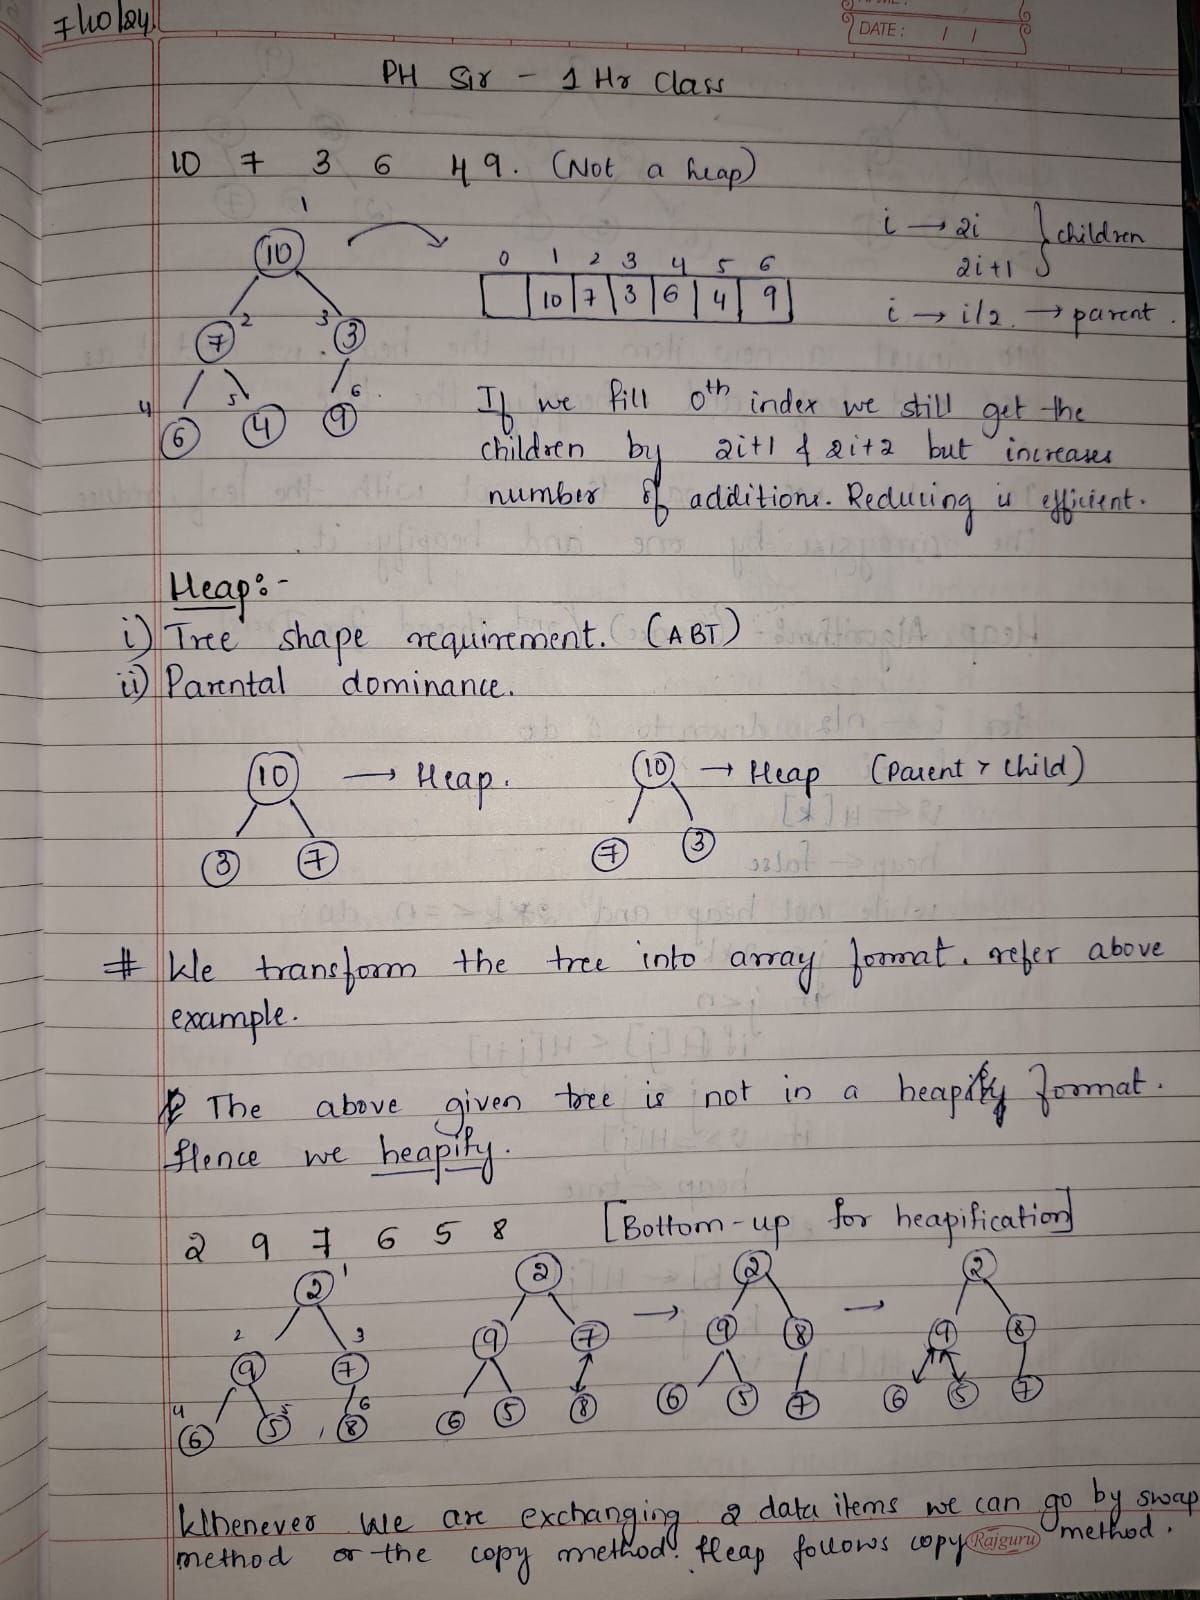 7/10/24
DATE: / /
PH Sir - 1 Hr Class
10 7 3 6 4 9. (Not a heap)
1
10
i → 2i } children
2i+1
i → i/2. → parent.
0 1 2 3 4 5 6
10 7 3 6 4 9
2 3
7 3
4 5 6
6 4 9
If we fill 0th index we still get the
children by 2i+1 & 2i+2 but increases
number of additions. Reducing is efficient.
Heap:-
i) Tree shape requirement. (ABT)
ii) Parental dominance.
10 → Heap. 10 → Heap (Parent > Child)
3 7 7 3
# We transform the tree into array format. refer above
example.
The above given tree is not in a heapify format.
Hence we heapify.
2 9 7 6 5 8 [Bottom-up for heapification]
2 1 2 → 2 → 2
2 3
9 7 9 7 9 8 9 8
4 5 6
6 5 8 6 5 8 6 5 7 6 5 7
Whenever we are exchanging 2 data items we can go by swap
method or the copy method. Heap follows copy method.
Rajguru